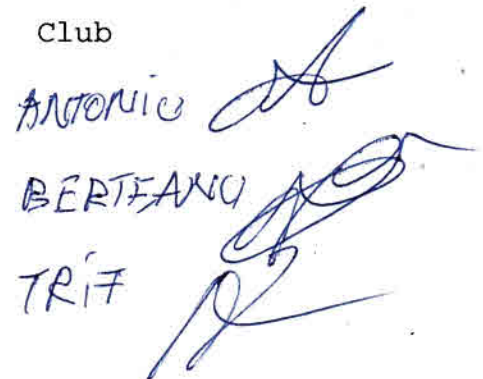 Club
ANTONIO
BERTEANU
TRIF